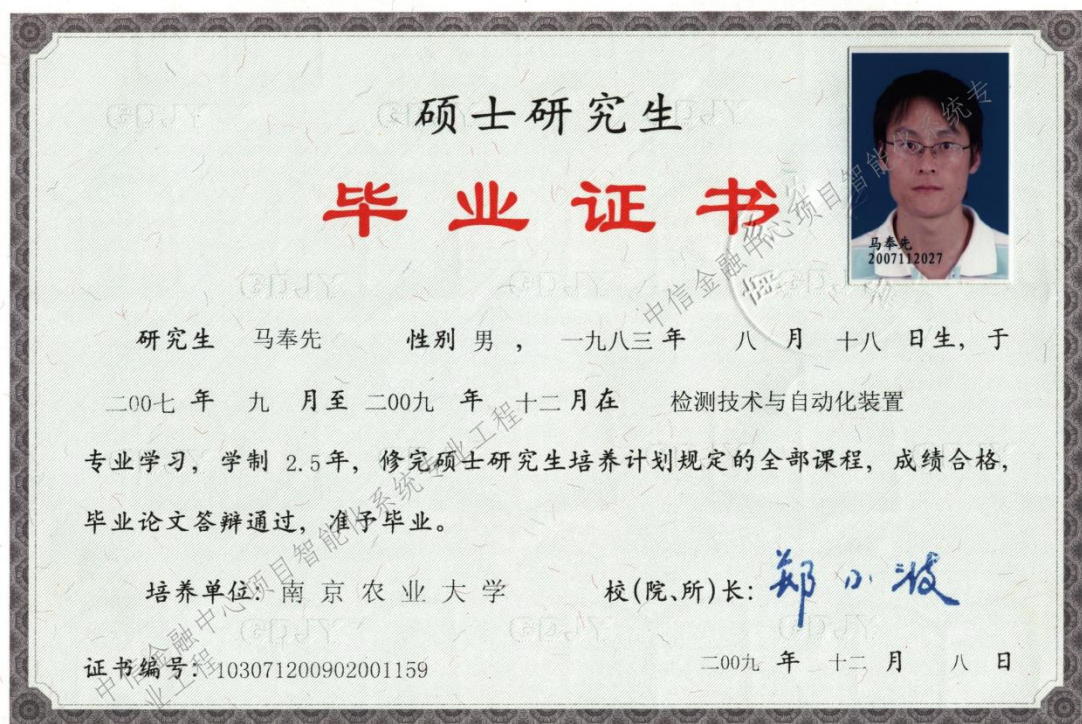 硕士研究生
毕业证书
马奉先
2007112027
研究生 马奉先 性别 男 , 一九八三 年 八 月 十八 日生, 于
二00七 年 九 月至 二00九 年 十二 月在 检测技术与自动化装置
专业学习, 学制 2.5年, 修完硕士研究生培养计划规定的全部课程, 成绩合格,
毕业论文答辩通过, 准予毕业。
培养单位: 南京农业大学 校(院、所)长: 郑小波
证书编号: 103071200902001159 二00九 年 十二 月 八 日
中信金融中心项目智能化系统专业工程
中信金融中心项目智能化系统专